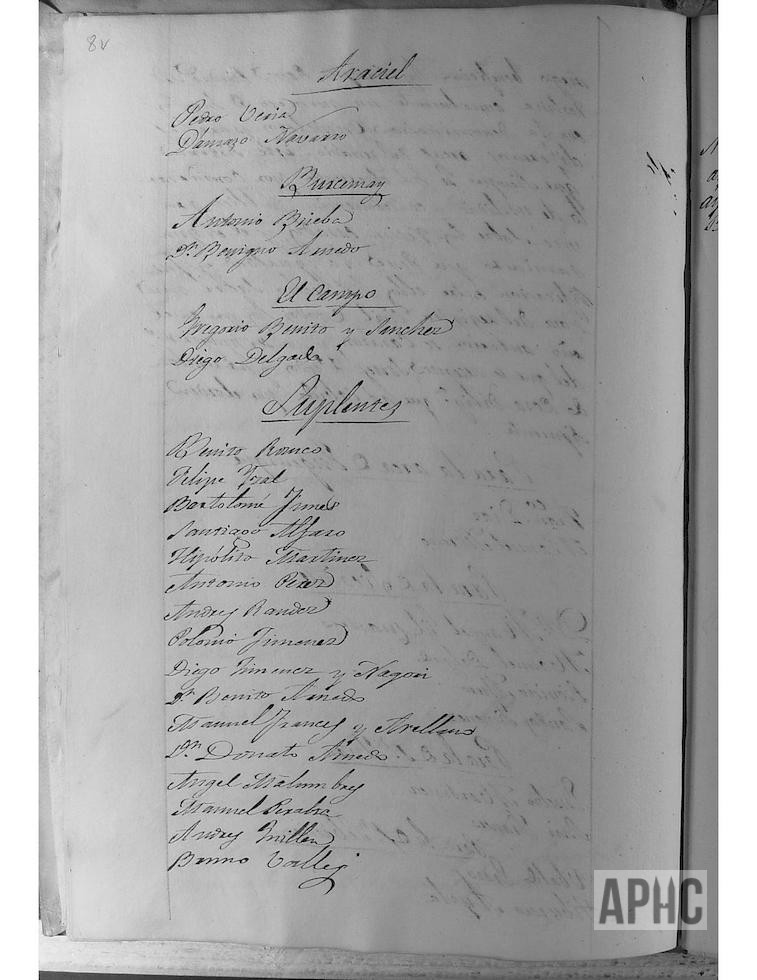 8v
Araciel
Pedro
Damazo Navarro
Burcemay
Antonio Brieba
Dn. Benigno Arnedo
El Campo
Gregorio Benito y Sanchez
Diego Delgado
Suplentes
Benito Ranco
Felipe Yzal
Bartolomé Jimes
Santiago Alfaro
Hipólito Martinez
Antonio Perez
Andres Randez
Polonio Jimenez
Diego Jimenez y Nagori
Dn. Benito Arnedo
Manuel Frances y Arellano
Dn. Donato Arnedo
Angel Malumbres
Manuel Peralta
Andres Guillen
Bruno Vallejo
APHC